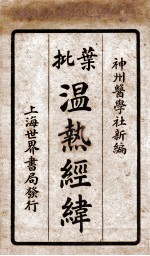 神州醫學社新編
葉批
溫熱經緯
上海世界書局發行